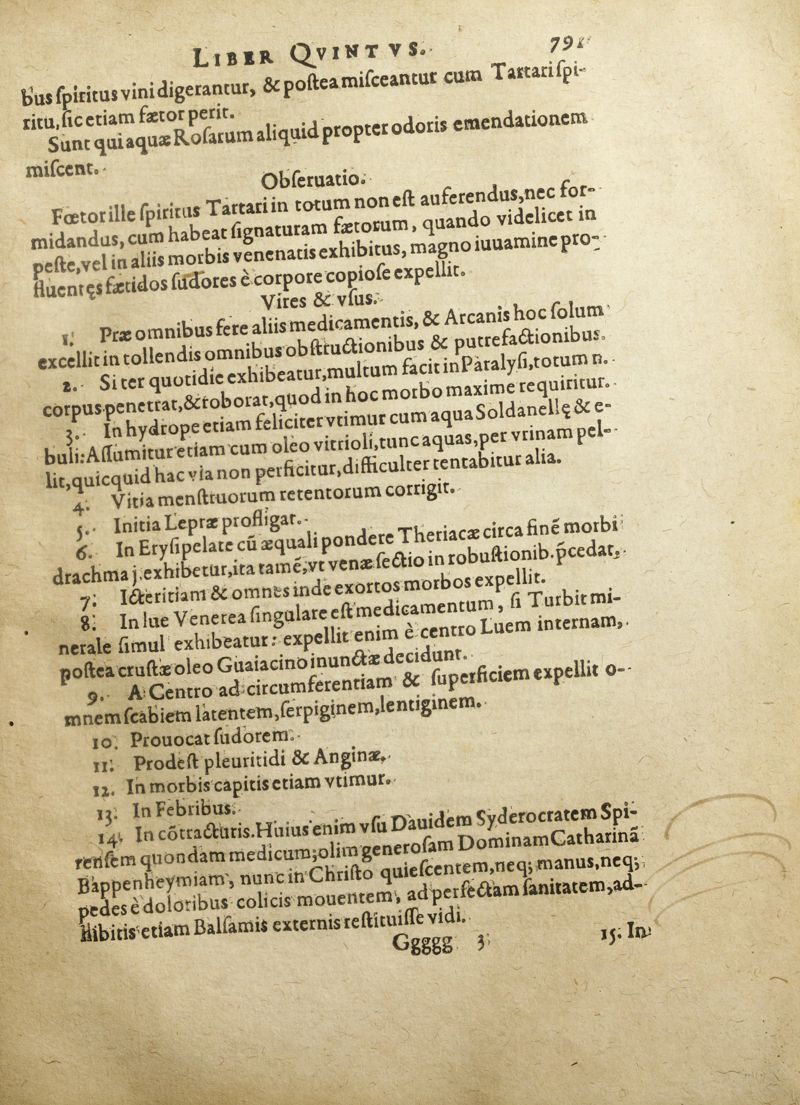 LIBER QVINTVS. 791
bus ſpiritus vini digerantur, & poſtea miſceantur cum Tartari ſpi-
ritu, ſic etiam fætor perit.
Sunt qui aquæ Roſarum aliquid propter odoris emendationem
miſcent.
Obſeruatio.
Fœtor ille ſpiritus Tartari in totum non eſt auferendus, nec for-
midandus, cum habeat ſignaturam fætorum, quando videlicet in
peſte, vel in aliis morbis venenatis exhibitus, magno iuuamine pro-
fluentęs fætidos ſudores è corpore copioſe expellit.
Vires & vſus.
1. Præ omnibus fere aliis medicamentis, & Arcanis hoc ſolum
excellit in tollendis omnibus obſtructionibus & putrefactionibus.
2. Si ter quotidie exhibeatur, multum facit in Paralyſi, totum n.
corpus penetrat, & roborat, quod in hoc morbo maxime requiritur.
3. In hydrope etiam feliciter vtimur cum aqua Soldanellę & e-
buli: Aſſumitur etiam cum oleo vitrioli, tunc aquas, per vrinam pel-
lit, quicquid hac via non perficitur, difficulter tentabitur alia.
4. Vitia menſtruorum retentorum corrigit.
5. Initia Lepræ profligat.
6. In Eryſipelate cū æquali pondere Theriacæ circa finē morbi
drachma j. exhibetur, ita tamē, vt venæ ſectio in robuſtionib. p̄cedat.
7. Icteritiam & omnes inde exortos morbos expellit.
8. In lue Venerea ſingulare eſt medicamentum, ſi Turbit mi-
nerale ſimul exhibeatur: expellit enim è centro Luem internam,
poſtea cruſtæ oleo Guaiacino inunctæ decidunt.
9. A Centro ad circumferentiam & ſuperficiem expellit o-
mnem ſcabiem latentem, ſerpiginem, lentiginem.
10. Prouocat ſudorem.
11. Prodeſt pleuritidi & Anginæ.
12. In morbis capitis etiam vtimur.
13. In Febribus.
14. In cōtracturis. Huius enim vſu Dauidem Syderocratem Spi-
renſem quondam medicum; olim generoſam Dominam Catharinā
Bappenheymiam, nunc in Chriſto quieſcentem, neq; manus, neq;
pedes è doloribus colicis mouentem, ad perfectam ſanitatem, ad-
hibitis etiam Balſamis externis reſtituiſſe vidi.
Ggggg 3 15. In